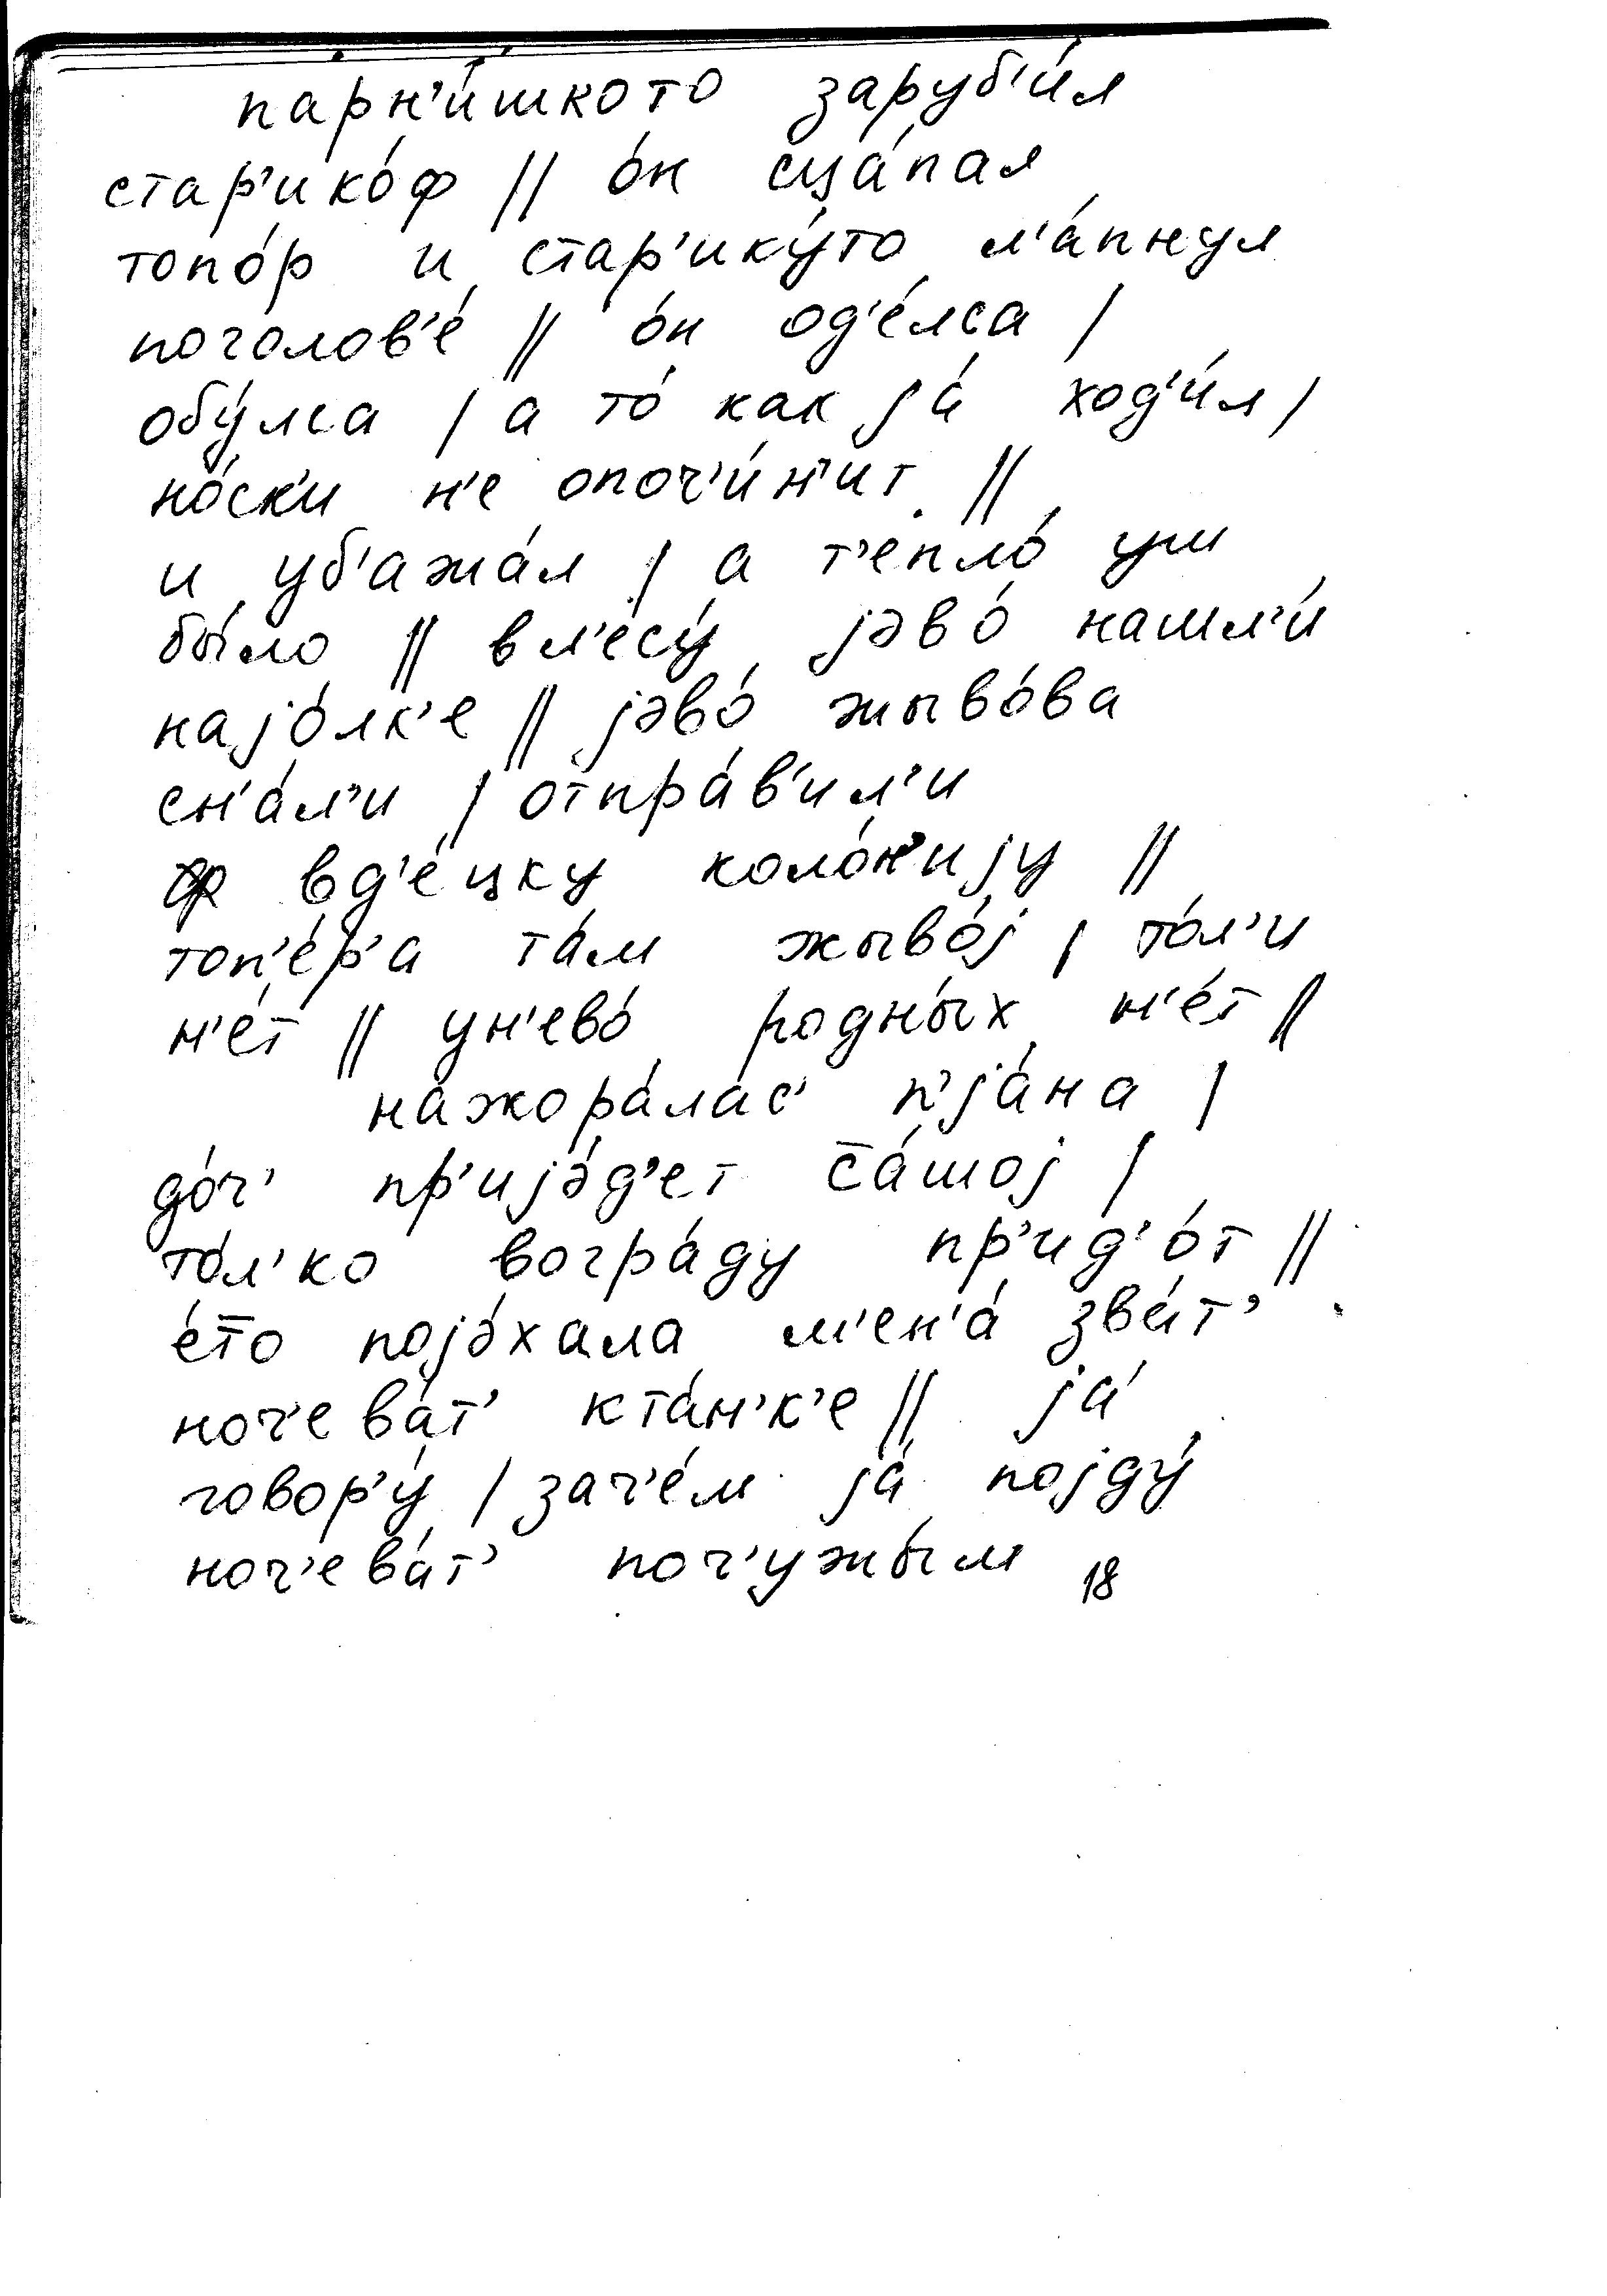 парн'и́шкото заруб'и́л
стар'ико́ф || о́н сца́пал
топо́р и стар'ику́то л'а́пнул
поголов'е́ || о́н од'е́лса |
обу́лса | а то́ как jа́ ход'и́л |
но́ск'и н'е опоч'и́н'ит ||
и уб'ажа́л | а т'епло́ уш
бы́ло || вл'есу́ jэво́ нашл'и́
наjо́лк'е || jэво́ жыво́ва
сн'а́л'и | отпра́в'ил'и
вд'е́цку коло́н'иjу ||
топ'е́р'а та́м жыво́j | то́л'и
н'е́т || ун'ево́ родны́х н'е́т ||
нажора́лас' п'jа́на |
до́ч' пр'иjэ́д'ет с̄а́шоj |
то́л'ко вогра́ду пр'ид'о́т ||
е́то поjэ́хала м'ен'а́ зва́т'
ноч'ева́т' кта́н'к'е || jа́
говор'у́ | зач'е́м jа́ поjду́
ноч'ева́т' поч'ужы́м 18